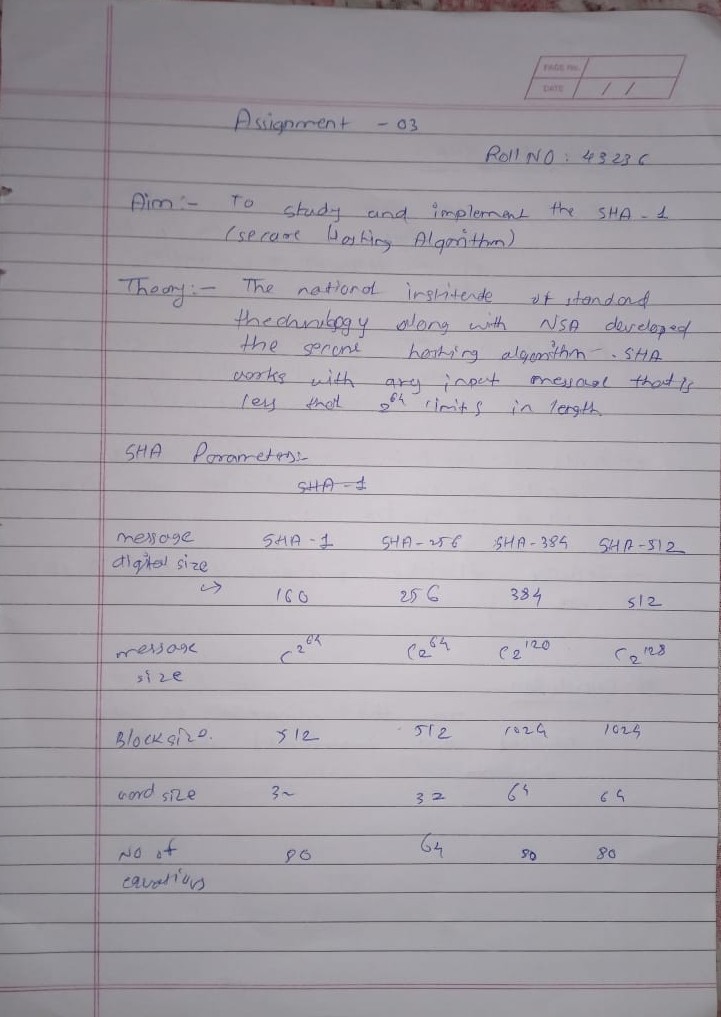 PAGE No.
DATE / /
Assignment - 03
Roll NO : 43236
Aim :- To study and implement the SHA - 1
(secare Hashing Algorithm)
Theory :- The national institende of standard
thechnology along with NSA developed
the secure hashing algorithm . SHA
works with any input message that is
less that 2^64 limits in length
SHA Parameters:-
SHA - 1
message SHA - 1 SHA - 256 SHA - 384 SHA - 512
digital size
↪ 160 256 384 512
message <2^64 <2^64 <2^120 <2^128
size
Block size. 512 512 1024 1024
word size 32 32 64 64
No of 80 64 80 80